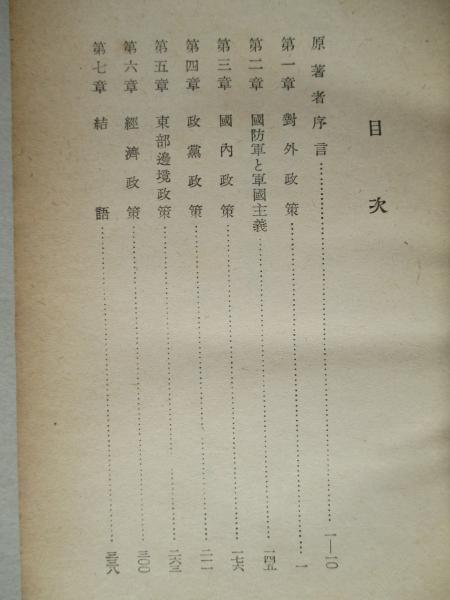 目次
原著者序言…………一—一〇
第一章 對外政策…………一
第二章 國防軍と軍國主義…………一四五
第三章 國內政策…………一七六
第四章 政黨政策…………二一一
第五章 東部邊境政策…………二六三
第六章 經濟政策…………三〇〇
第七章 結語…………三三八